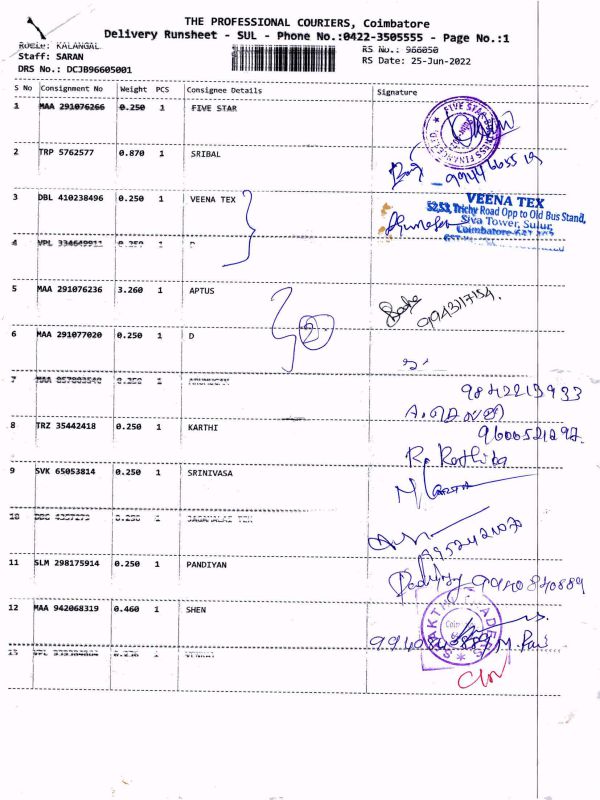 THE PROFESSIONAL COURIERS, Coimbatore
Delivery Runsheet - SUL - Phone No.:0422-3505555 - Page No.:1
Route: KALANGAL
RS No.: 966050
Staff: SARAN
RS Date: 25-Jun-2022
DRS No.: DCJB96605001
S No Consignment No Weight PCS Consignee Details Signature
1 MAA 291076266 0.250 1 FIVE STAR
2 TRP 5762577 0.870 1 SRIBAL
9944665519
3 DBL 410238496 0.250 1 VEENA TEX
VEENA TEX
52,53, Trichy Road Opp to Old Bus Stand,
Siva Tower, Sulur,
4 VPL 334649911 0.250 1 D
5 MAA 291076236 3.260 1 APTUS
2
9943117154.
6 MAA 291077020 0.250 1 D
7 0.250 1
9842219933
8 TRZ 35442418 0.250 1 KARTHI
9600521297.
9 SVK 65053814 0.250 1 SRINIVASA
10 0.250 1
9952421070
11 SLM 298175914 0.250 1 PANDIYAN
9940840889
12 MAA 942068319 0.460 1 SHEN
13 1